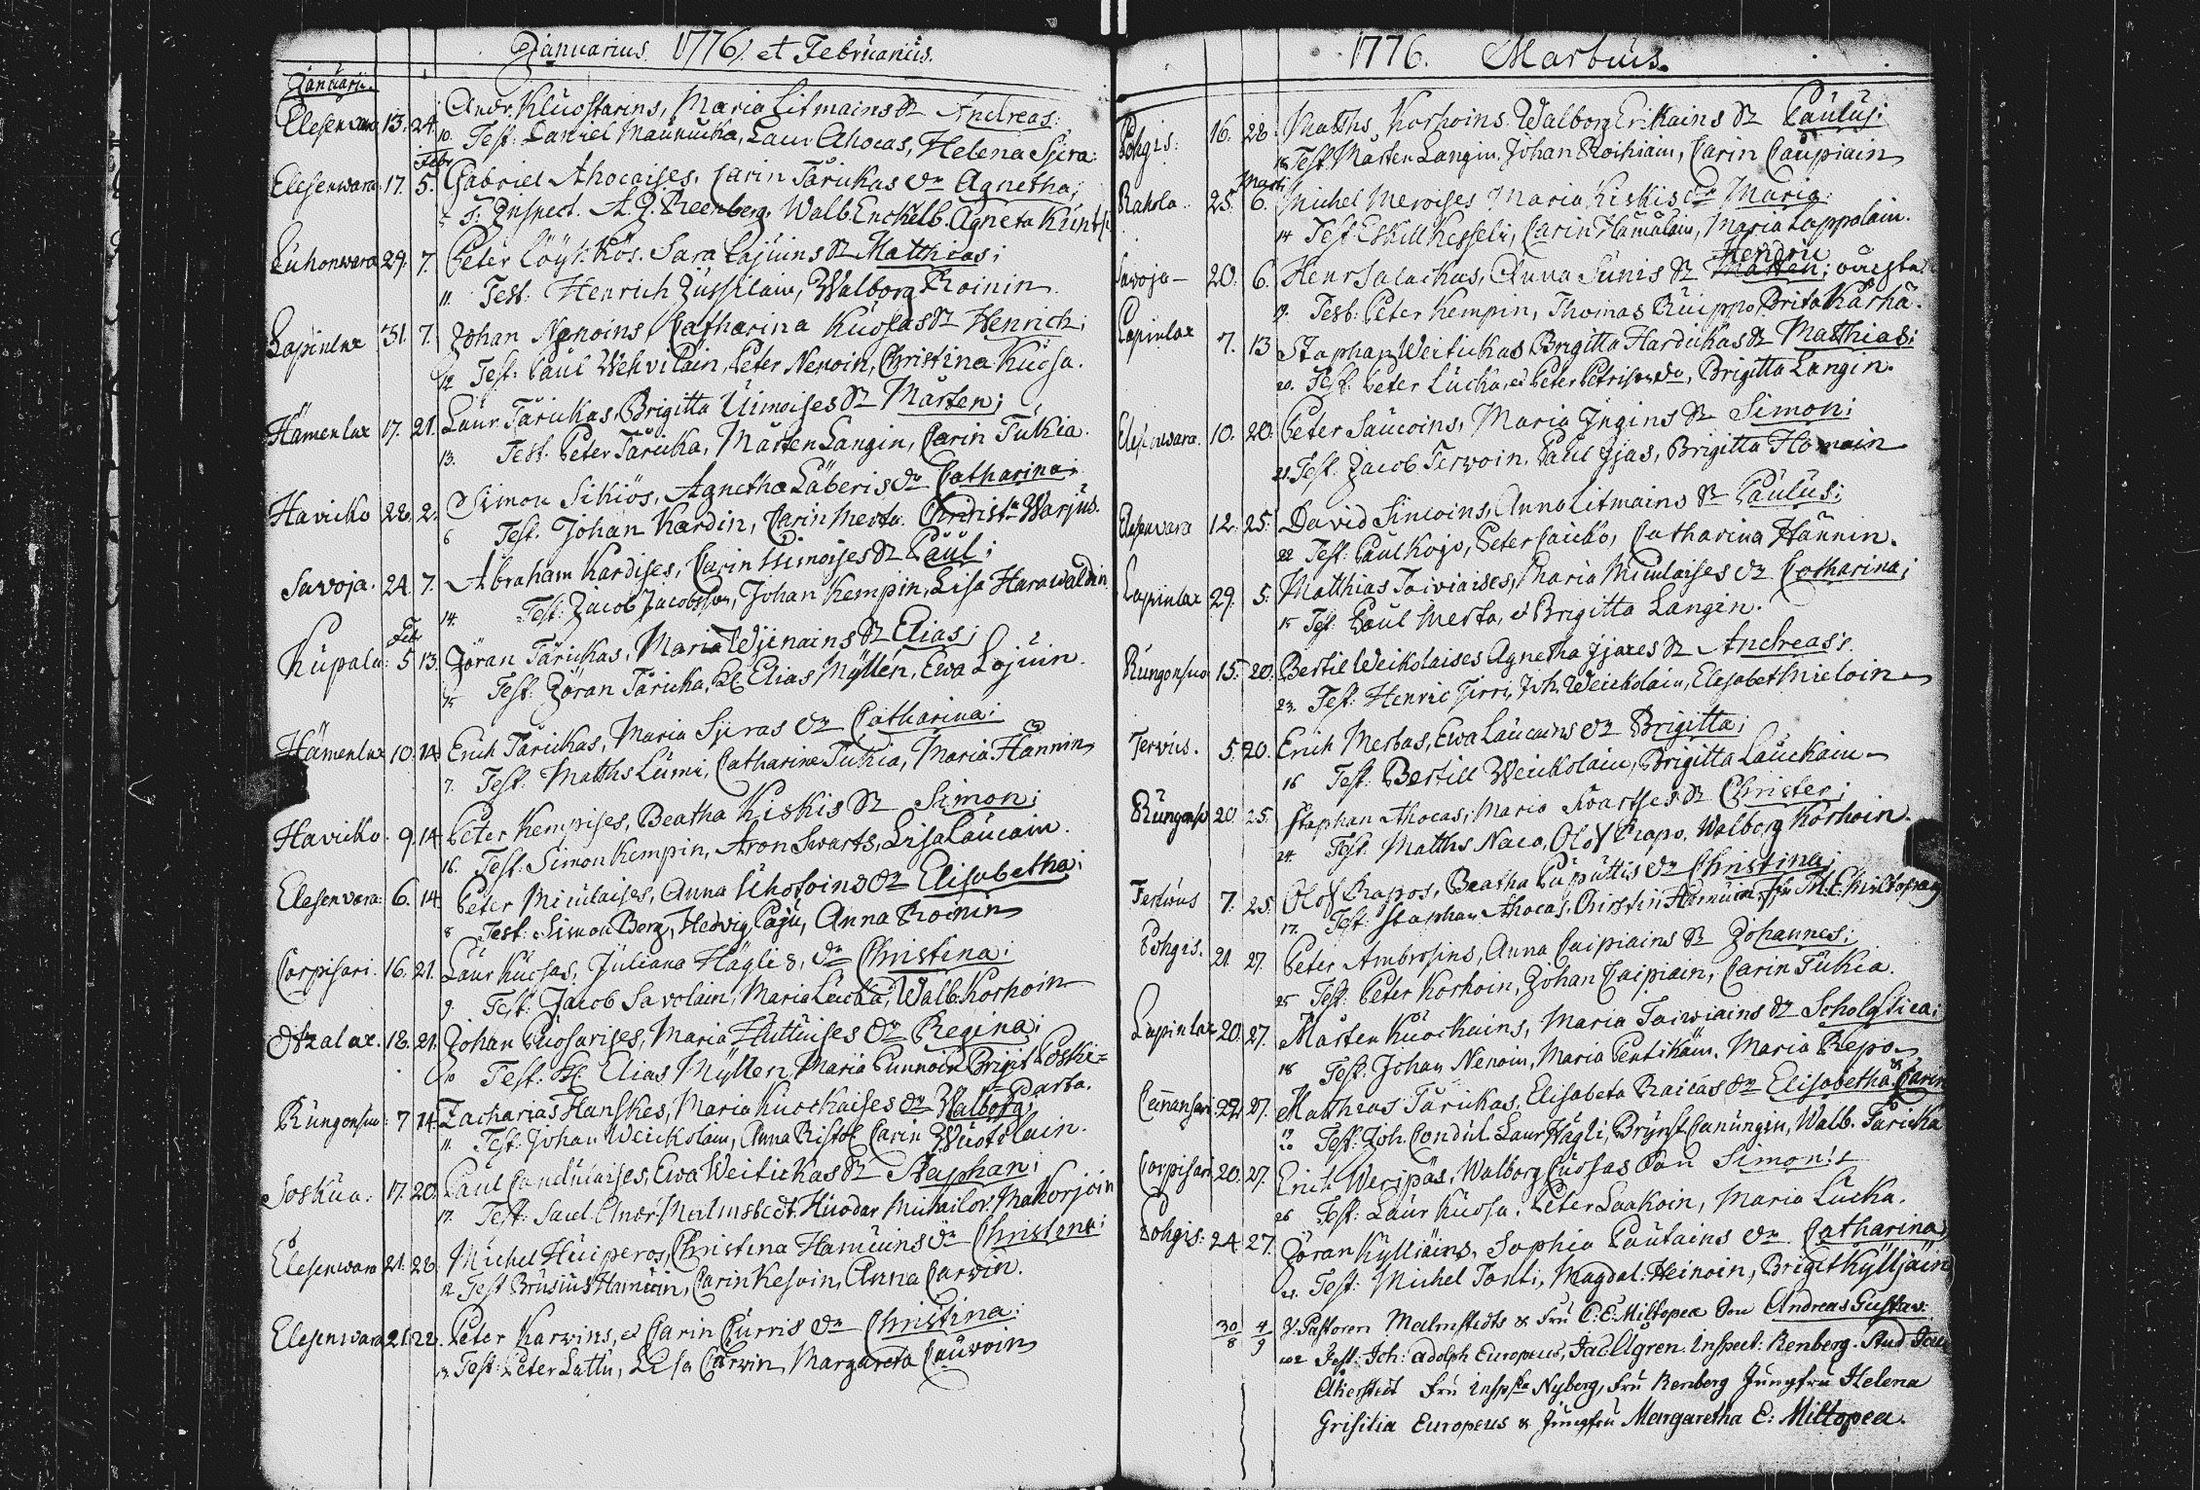 Januarius 1776. et Februarius.
Januarii
Elesenvara 13. 24. Andr. Kluostarins, Maria Litmains Sr Andreas:
10. Test: Daniel Maunucka, Laur Ahocas, Helena Sjera:
Febr
Elesenwara. 17. 5. Gabriel Ahocaises, Carin Tärickas dr Agnetha;
T: Inspect. A. J. Reenberg. Walb. Enckelb. Agneta
29. 7. Peter Löyckös. Sara Lajuins Sr Matthias;
11. Test: Henrich Jussilain, Walborg Roinin.
Lapinlax 31. 7. Johan Nenoins, Catharina Kuosas Sr Henrich;
12 Test: Paul Wehvilain, Peter Nenoin, Christina Kuosa.
Hämenlax 17. 21. Laur Tärickas, Brigitta Uimoises Sr Mårten;
13. Test. Peter Täricka, Mårten Langin, Carin Tukia.
Havicko 28. 2. Simon Sikiös, Agnetha Läberis dr Catharina;
6 Test. Johan Kardin, Carin Merta. Christ: Warjus.
Savoja. 24. 7. Abraham Kardises, Carin Uimoises Sr Paul;
14. Test: Jacob Jacobsson, Johan Kempin, Lisa Harawaldin
Feb
Kupala: 5 13. Jöran Tärickas, Maria Wjinains Sr Elias;
15 Test: Jöran Täricka, Elias Myllen, Ewa Lajuin.
Hämenlax 10. 14. Erich Tärickas, Maria Sjeras dr Catharina;
7. Test: Matths Lumi, Catharina Tukia, Maria Hännin
Havicko. 9. 14. Peter Kempises, Beatha Kiskis Sr Simon;
16. Test: Simon Kempin, Aron Swarts, Lisa Laucain.
Elesenvara: 6. 14. Peter Miculaises, Anna Uhotoins dr Elisabetha;
8 Test: Simon Berg, Hedvig Paju, Anna Roinin
Corpisari. 16. 21. Laur Kuosas, Juliana Häglis, dr Christina;
9. Test: Jacob Savolain, Maria Lucka, Walb. Korhoin
Otzalax. 18. 21. Johan Puosarises, Maria Huttuises dr Regina;
10 Test: Elias Myllen, Maria Punnoin, Brigit Koski=
parta.
Rungonsuo: 7 14. Zacharias Hanskes, Maria Kuockaises dr Walborg;
11 Test: Johan Weickolain, Anna Ristol Carin Wuotolain.
Soskua: 17. 20. Paul Conduraises, Ewa Weitickas Sr Staphan;
17. Test: Sacel. Andr Malmstedt. Michailov: Makorjoin
Elesenwara 21. 28. Michel Huiperos, Christina Hamuins dr Christena:
12 Test Brusius Hamuin, Carin Kesoin, Anna Carvin.
Elesenwara 21. 22. Peter Karvins, et Carin Purris dr Christina:
13 Test: Peter Lattu, Lisa Carvin, Margareta Cauvoin
1776. Martius.
Pohgis: 16. 28. Matths Korhoins Walborg Erikains Sr Paulus;
18 Test. Mårten Langin, Johan Roihiain, Carin Caupiain
Marti
Rahola. 25. 6. Michel Meroises Maria Kiskis dr Maria:
14 Test: Eskill Kesseli, Carin Hämäläin, Maria Lappalain.
Hendric
Savoja 20. 6. Henr Salackas, Anna Sunis Sr Mårten;
19. Test: Peter Kempin, Thomas Ruippo, Brita Kärhä.
Lapinlax 7. 13 Staphan Weitickas Brigitta Hardickas Sr Matthias;
20. Test: Peter Lucka, et Peter Petrisson, Brigitta Langin.
Elesenwara. 10. 20. Peter Saucoins, Maria Ingins Sr Simon;
21. Test. Jacob Terwoin, Paul Ijas, Brigitta Homain
Elesenvara 12. 25. David Sincoins, Anna Litmains Sr Paulus;
22 Test: Paul Kojo, Peter Caicko, Catharina Hännin.
Lapinlax 29. 5. Matthias Toiviaises, Maria Miculaises dr Catharina;
15 Test: Paul Merta, et Brigitta Langin.
Rungonsuo 15. 20. Bertil Weikolaises Agnetha Ijaxes Sr Andreas;
23. Test: Henric Jirri, Joh. Weickolain, Elesabet Mieloin
Tervus. 5. 20. Erich Mertas, Ewa Laucains dr Brigitta;
16 Test: Bertill Weickolain, Brigitta Lauckain
Rungons 20 25. Staphan Ahocas, Maria Swartses Sr Christer;
24. Test. Matths Naco, Olof Rapo, Walborg Korhoin.
Tervus 7. 25. Olof Rapos, Beatha Puputtis dr Christina;
17. Test: Staphan Ahocas, Christin Hämäin
Pohgis. 21. 27. Peter Ambrosins, Anna Caipiains Sr Johannes;
25 Test: Peter Korhoin, Johan Caipiain, Carin Tukia.
Lapinlax 20. 27. Mårten Kuockains, Maria Toiwiains dr Scholastica;
18 Test: Johan Nenoin, Maria Pentikäin, Maria Repo
Cunansari 22. 27. Matthias Tärickas, Elisabeta Raicas dr Elisabetha & Carin
19 20 Test: Joh: Condul Laur Hägli, Brynst Cunungin, Walb. Täricka
Corpisari 20. 27. Erich Werjpäs, Walborg Cuosas Son Simon;
26 Test: Laur Kuosa, Peter Laakoin, Maria Lucka.
Pohgis: 24. 27. Jöran Kylliäins, Sophia Pautains dr Catharina
21. Test: Michel Tonti, Magdal: Heinoin, Brigit Kylljäin
30/8 4/9 V. Pastoren Malmstedts & Fru C: E: Miltopea Son Andreas Gustav:
Test: Joh: Adolph Europæus, Jac Algren. Inspect: Renberg. Stud
Akerstedt Fru Inspska Nyberg, Fru Renberg Jungfru Helena
Grisilia Europeus & Jungfru Margaretha E: Miltopea.